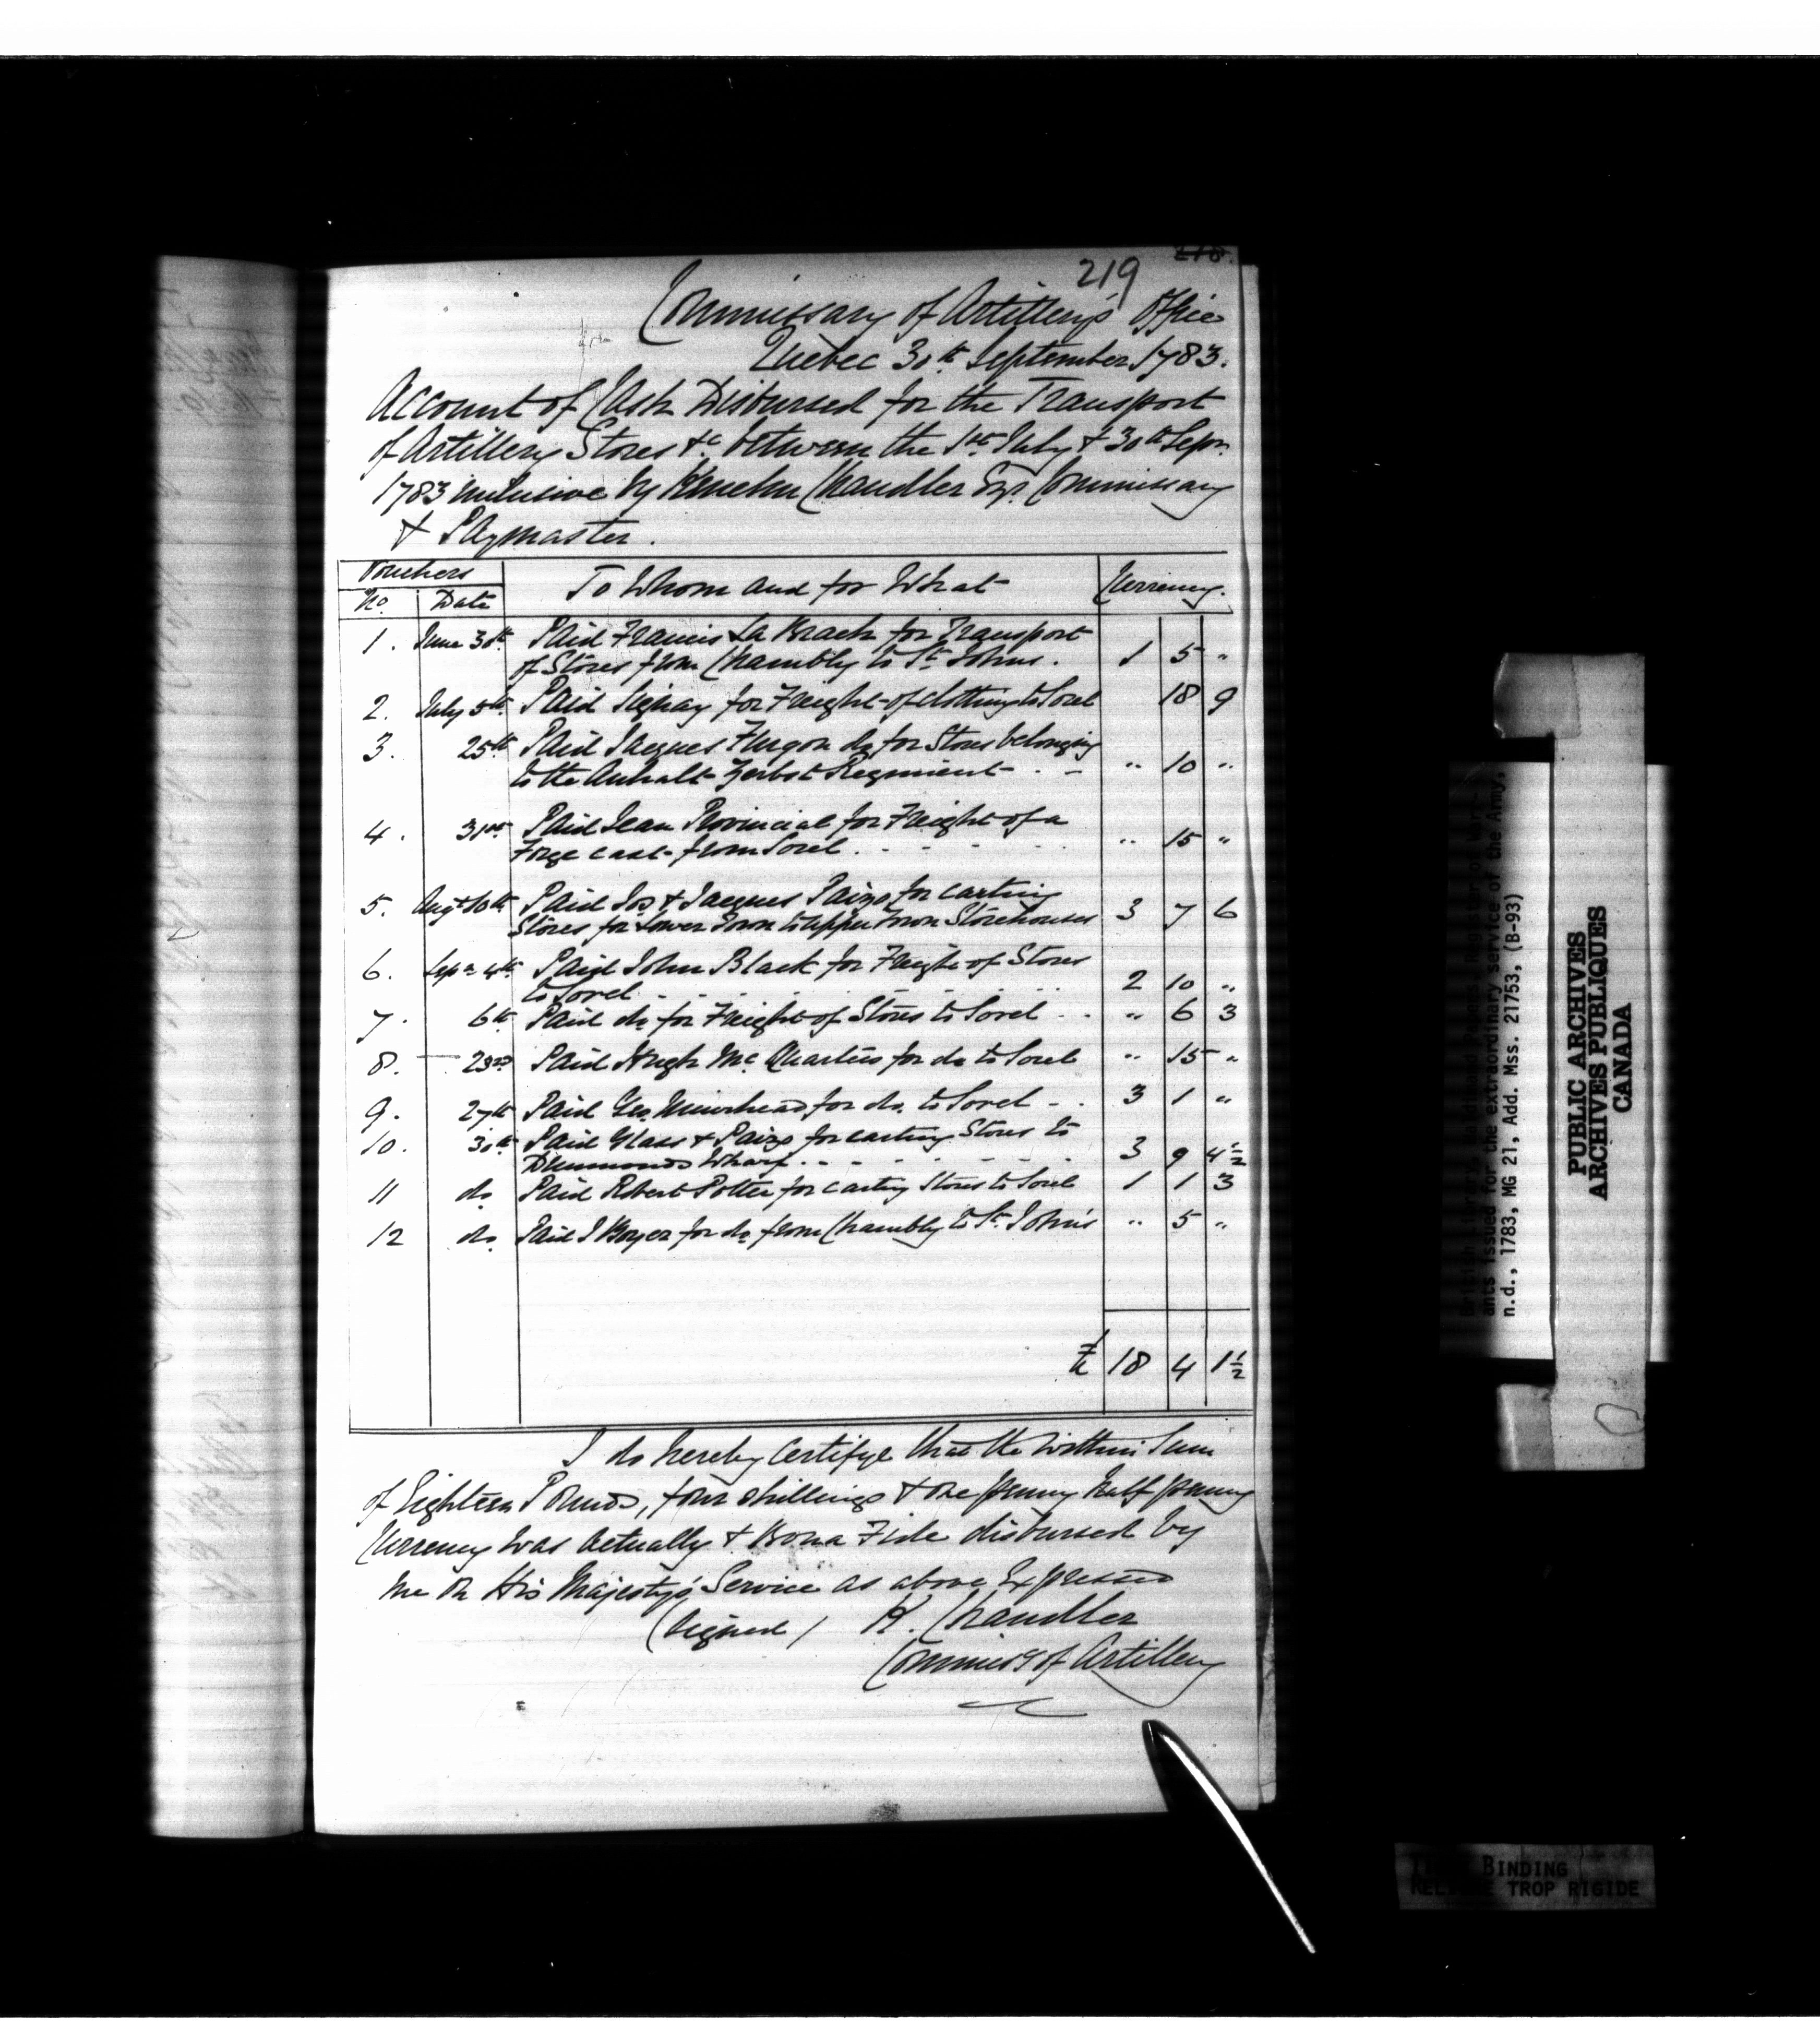 219
Commissary of Artillery's Office
Quebec 30th September 1783.
Account of Cash Disbursed for the Transport
of Artillery Stores &c between the 1st July & 30th Sepr.
1783 inclusive by Kenelm Chandler Esqr. Commissary
& Paymaster.
Vouchers To Whom and for What Currency.
No. Date
1. June 30th Paid Francis La Brach for Transport
of Stores from Chambly to St Johns. 1 5 "
2. July 5th Paid Signay for Freight of Clothing to Sorel 18 9
3. 25th Paid Jacques Flugon do for Stores belonging
to the Anhalt Zerbst Regiment - . - " 10 "
4. 31st Paid Jean Provincial for Freight of a
Forge cart from Sorel . - - - . " 15 "
5. Augt 10th Paid Jos & Jacques Paizo for carting
Stores for Lower Town to upper Town Storehouses 3 7 6
6. Sepr 4th Paid John Black for Freight of Stores
to Sorel - . . . . . 2 10 "
7. 6th Paid do for Freight of Stores to Sorel - . " 6 3
8. 23rd Paid Hugh McQuarters for do to Sorel " 15 "
9. 27th Paid Geo. Muirhead for do. to Sorel - . 3 1 "
10. 30th Paid Glass & Paizo for carting Stores to
Drummonds Wharf . - - - - - 3 9 4½
11 do Paid Robert Potter for carting Stores to Sorel 1 1 3
12 do. Paid J Boyer for do from Chambly to St. John's " 5 "
£ 18 4 1½
I do hereby Certifye that the within Sum
of Eighteen Pounds, four shillings & one penny half penny
Currency was actually & Bona Fide disbursed by
me on His Majesty's Service as above Expressed
(Signed) K. Chandler
Commissy of Artillery
British Library, Haldimand Papers, Register of Warr-
ants issued for the extraordinary service of the Army,
n.d., 1783, MG 21, Add. Mss. 21753, (B-93)
PUBLIC ARCHIVES
ARCHIVES PUBLIQUES
CANADA
BINDING
TROP RIGIDE